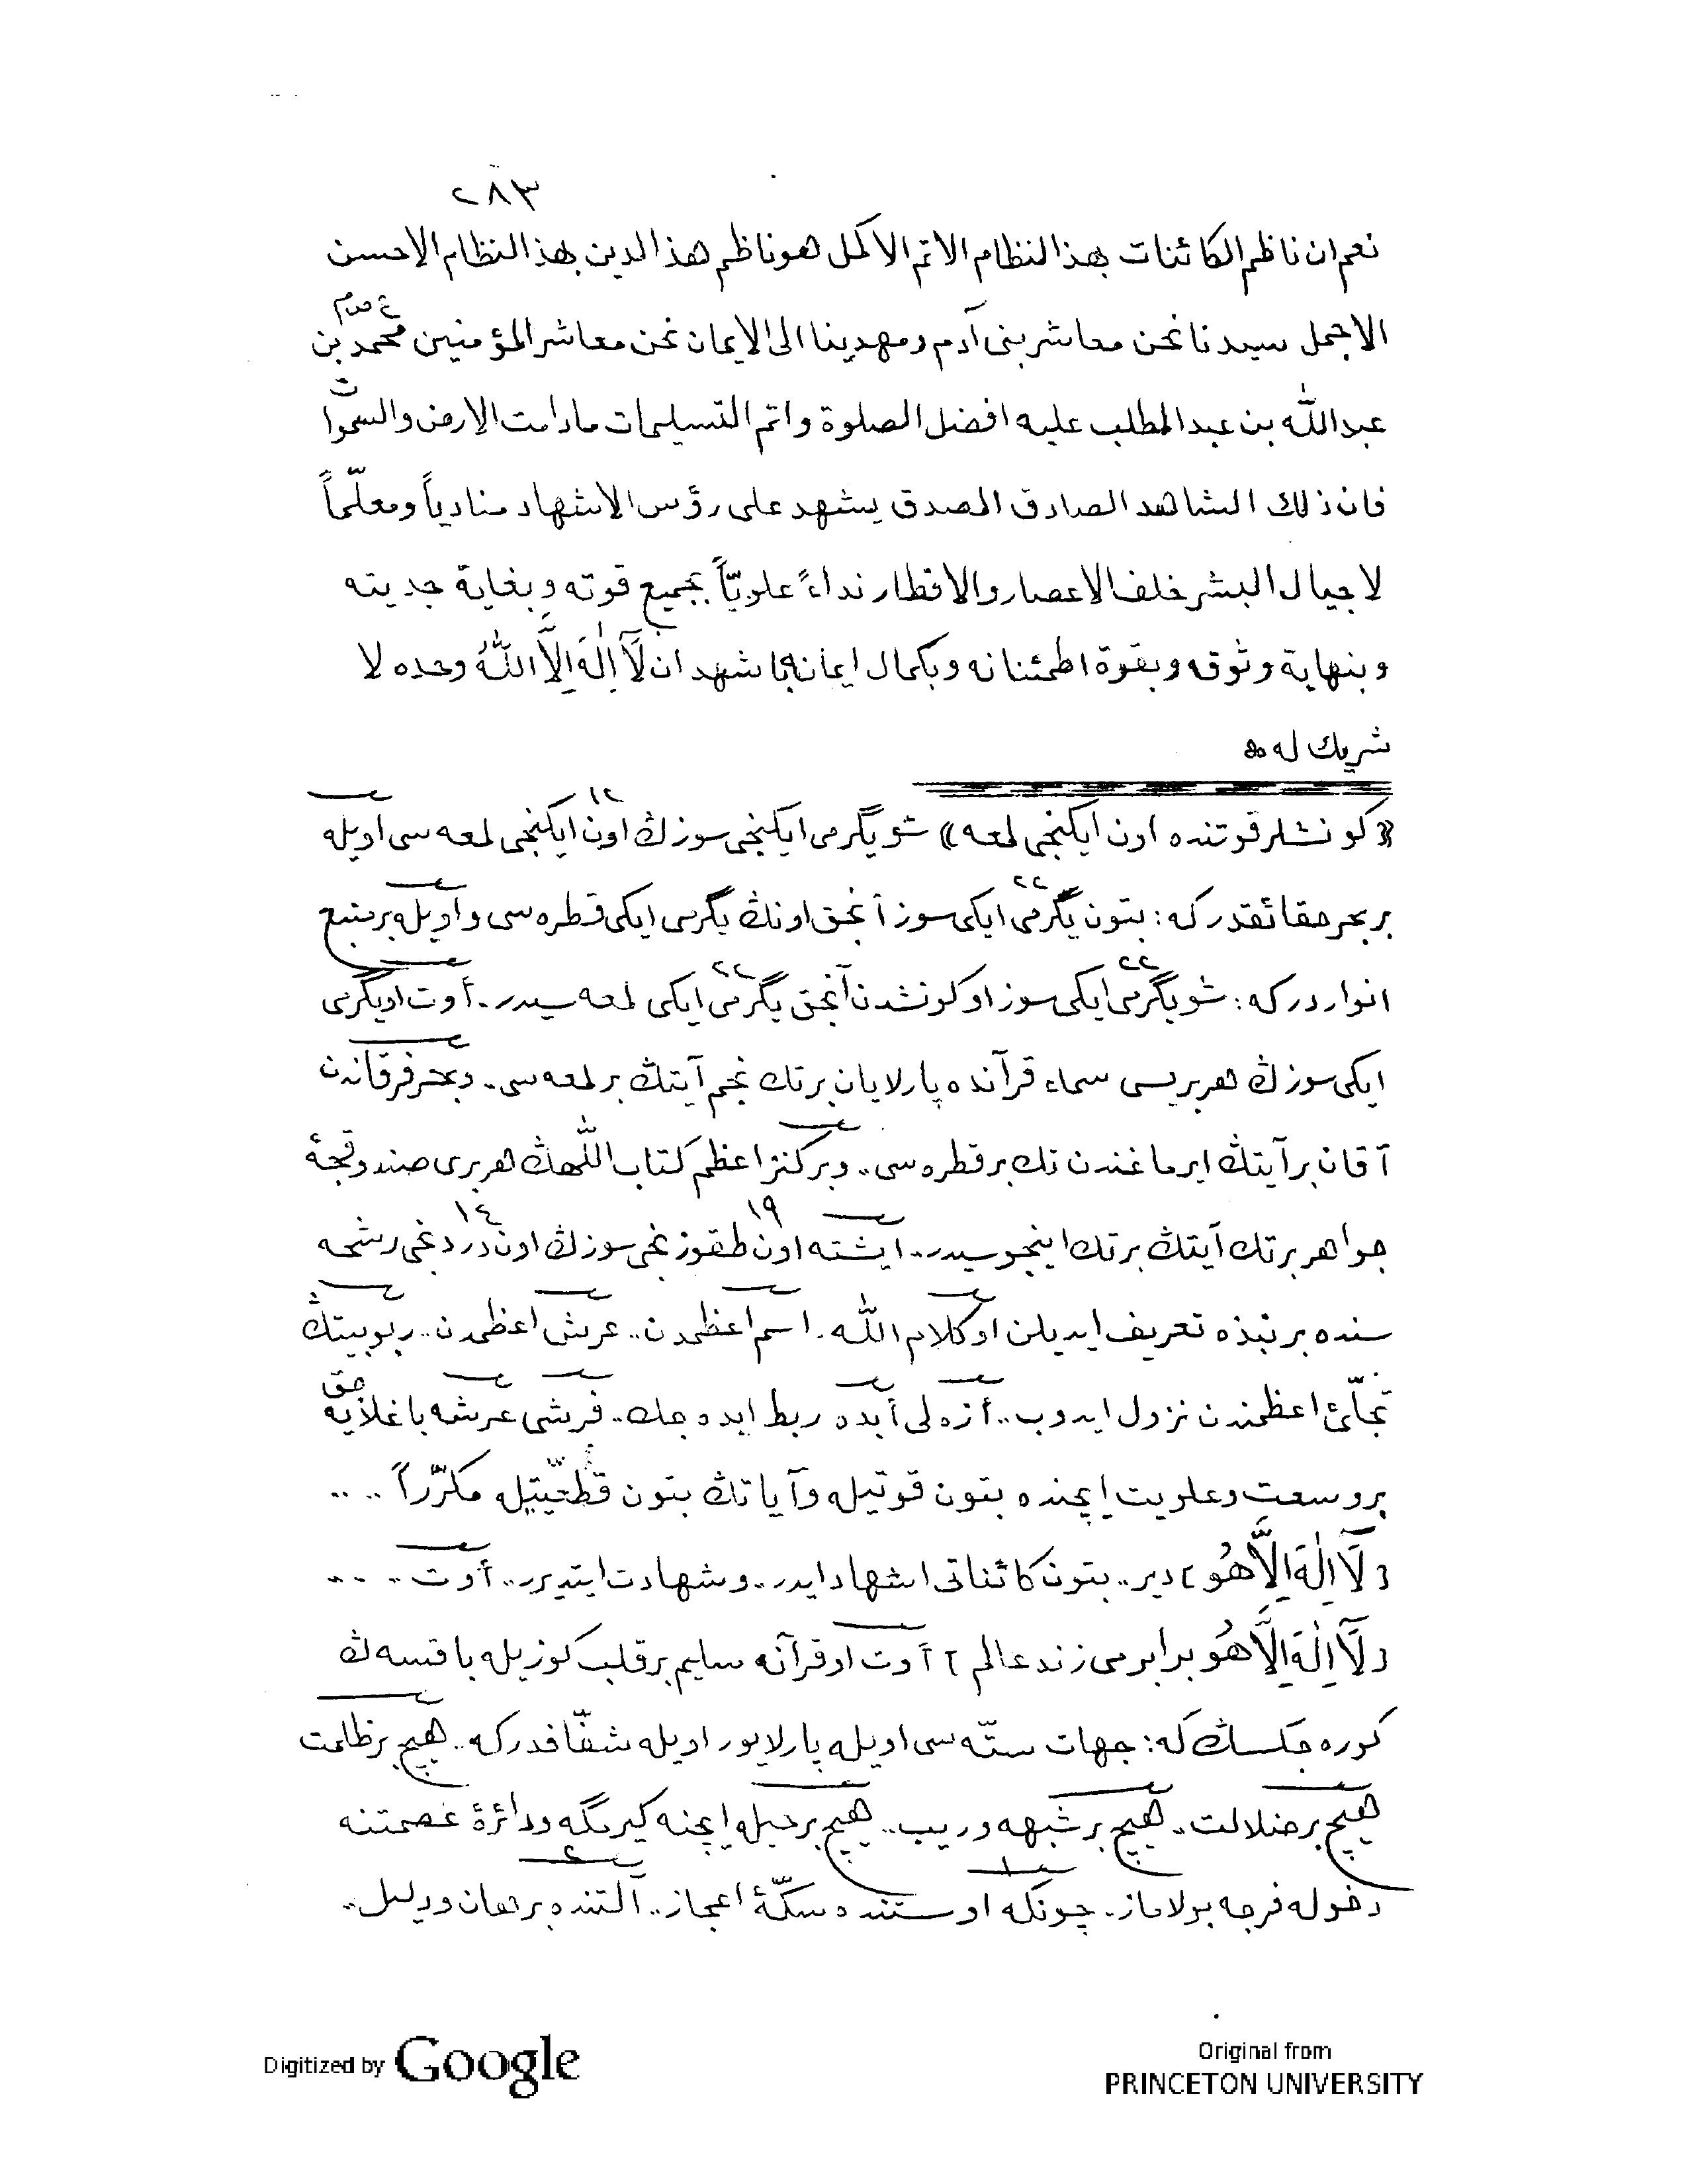 ٢٨٣
نعم ان ناظم الكائنات بهذا النظام الاتم الاكمل هو ناظم هذا الدين بهذا النظام الاحسن
الاجمل سيدنا نحن معاشر بنى آدم ومهدينا الى الايمان نحن معاشر المؤمنين محمد بن
عبد الله بن عبد المطلب عليه افضل الصلوة واتم التسليمات مادامت الارض والسموات
فان ذلك الشاهد الصادق المصدق يشهد على رؤس الاشهاد منادياً ومعلّماً
لاجيال البشر خلف الاعصار والاقطار نداءً علويّاً بجميع قوته وبغاية جديته
وبنهاية وثوقه وبقوة اطمئنانه وبكمال ايمانه باشهد ان لَآ اِلٰهَ اِلَّا اللّٰهُ وحده لا
شريك له
«كونشلر قوتنده اون ايكنجى لمعه» شو يگرمى ايكنجى سوزڭ ١٢ اون ايكنجى لمعه سى اويله
بر بحر حقائقدر كه: بتون ٢٢ يگرمى ايكى سوز آنجق اونڭ يگرمى ايكى قطره سى واويله بر منبع
انواردر كه: شو ٢٢ يگرمى ايكى سوز او كونشدن آنجق ٢٢ يگرمى ايكى لمعه سيدر.. أوت او يگرمى
ايكى سوزڭ هر بريسى سماء قرآنده پارلايان برتك نجم آيتڭ بر لمعه سى.. وبحر فرقاندن
آقان بر آيتڭ ايرماغندن تك بر قطره سى.. وبر كنز اعظم كتاب اللّٰهڭ هر برى صندوقچهٔ
جواهر برتك آيتڭ برتك اينجوسيدر.. ايشته ١٩ اون طقوزنجى سوزڭ ١٤ اون دردنجى رشحه
سنده بر نبذه تعريف ايديلن او كلام اللّٰه. اسم اعظمدن.. عرش اعظمدن.. ربوبيتڭ
تجلّئ اعظمندن نزول ايدوب.. أزه لى أبده ربط ايده جك.. فرشى عرشه باغلايه جق
بر وسعت وعلويت ايچنده بتون قوتيله وآياتڭ بتون قطعيّتيله مكرّراً ....
[لَآ اِلٰهَ اِلَّا هُو] دير.. بتون كائناتى اشهاد ايدر.. وشهادت ايتديرر.. أوت ....
[لَآ اِلٰهَ اِلَّا هُو برابر مى زند عالم] أوت او قرآنه سليم بر قلب كوزيله باقسه ڭ
كوره جكسڭ كه: جهات ستّه سى اويله پارلايور اويله شفّافدر كه.. هيچ بر ظلمت
هيچ بر ضلالت.. هيچ بر شبهه وريب.. هيچ بر حيله ايچنه كيرمگه ودائرهٔ عصمتنه
دخوله فرجه بولاماز.. چونكه ١ اوستنده سكّهٔ اعجاز.. ٢ آلتنده برهان ودليل..
Digitized by Google
Original from
PRINCETON UNIVERSITY